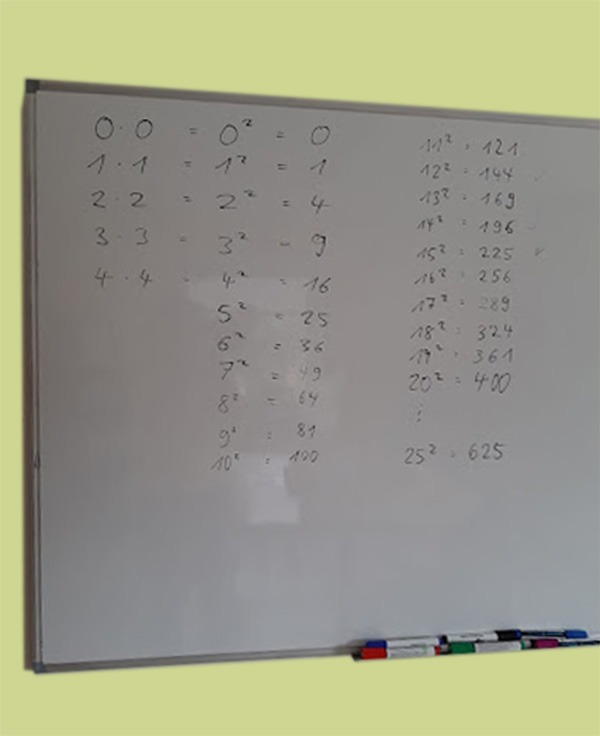 0 · 0 = 0² = 0
1 · 1 = 1² = 1
2 · 2 = 2² = 4
3 · 3 = 3² = 9
4 · 4 = 4² = 16
5² = 25
6² = 36
7² = 49
8² = 64
9² = 81
10² = 100
11² = 121
12² = 144
13² = 169
14² = 196
15² = 225
16² = 256
17² = 289
18² = 324
19² = 361
20² = 400
⋮
25² = 625